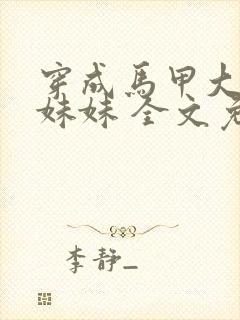 穿成馬甲大
妹妹 全文免
李靜_